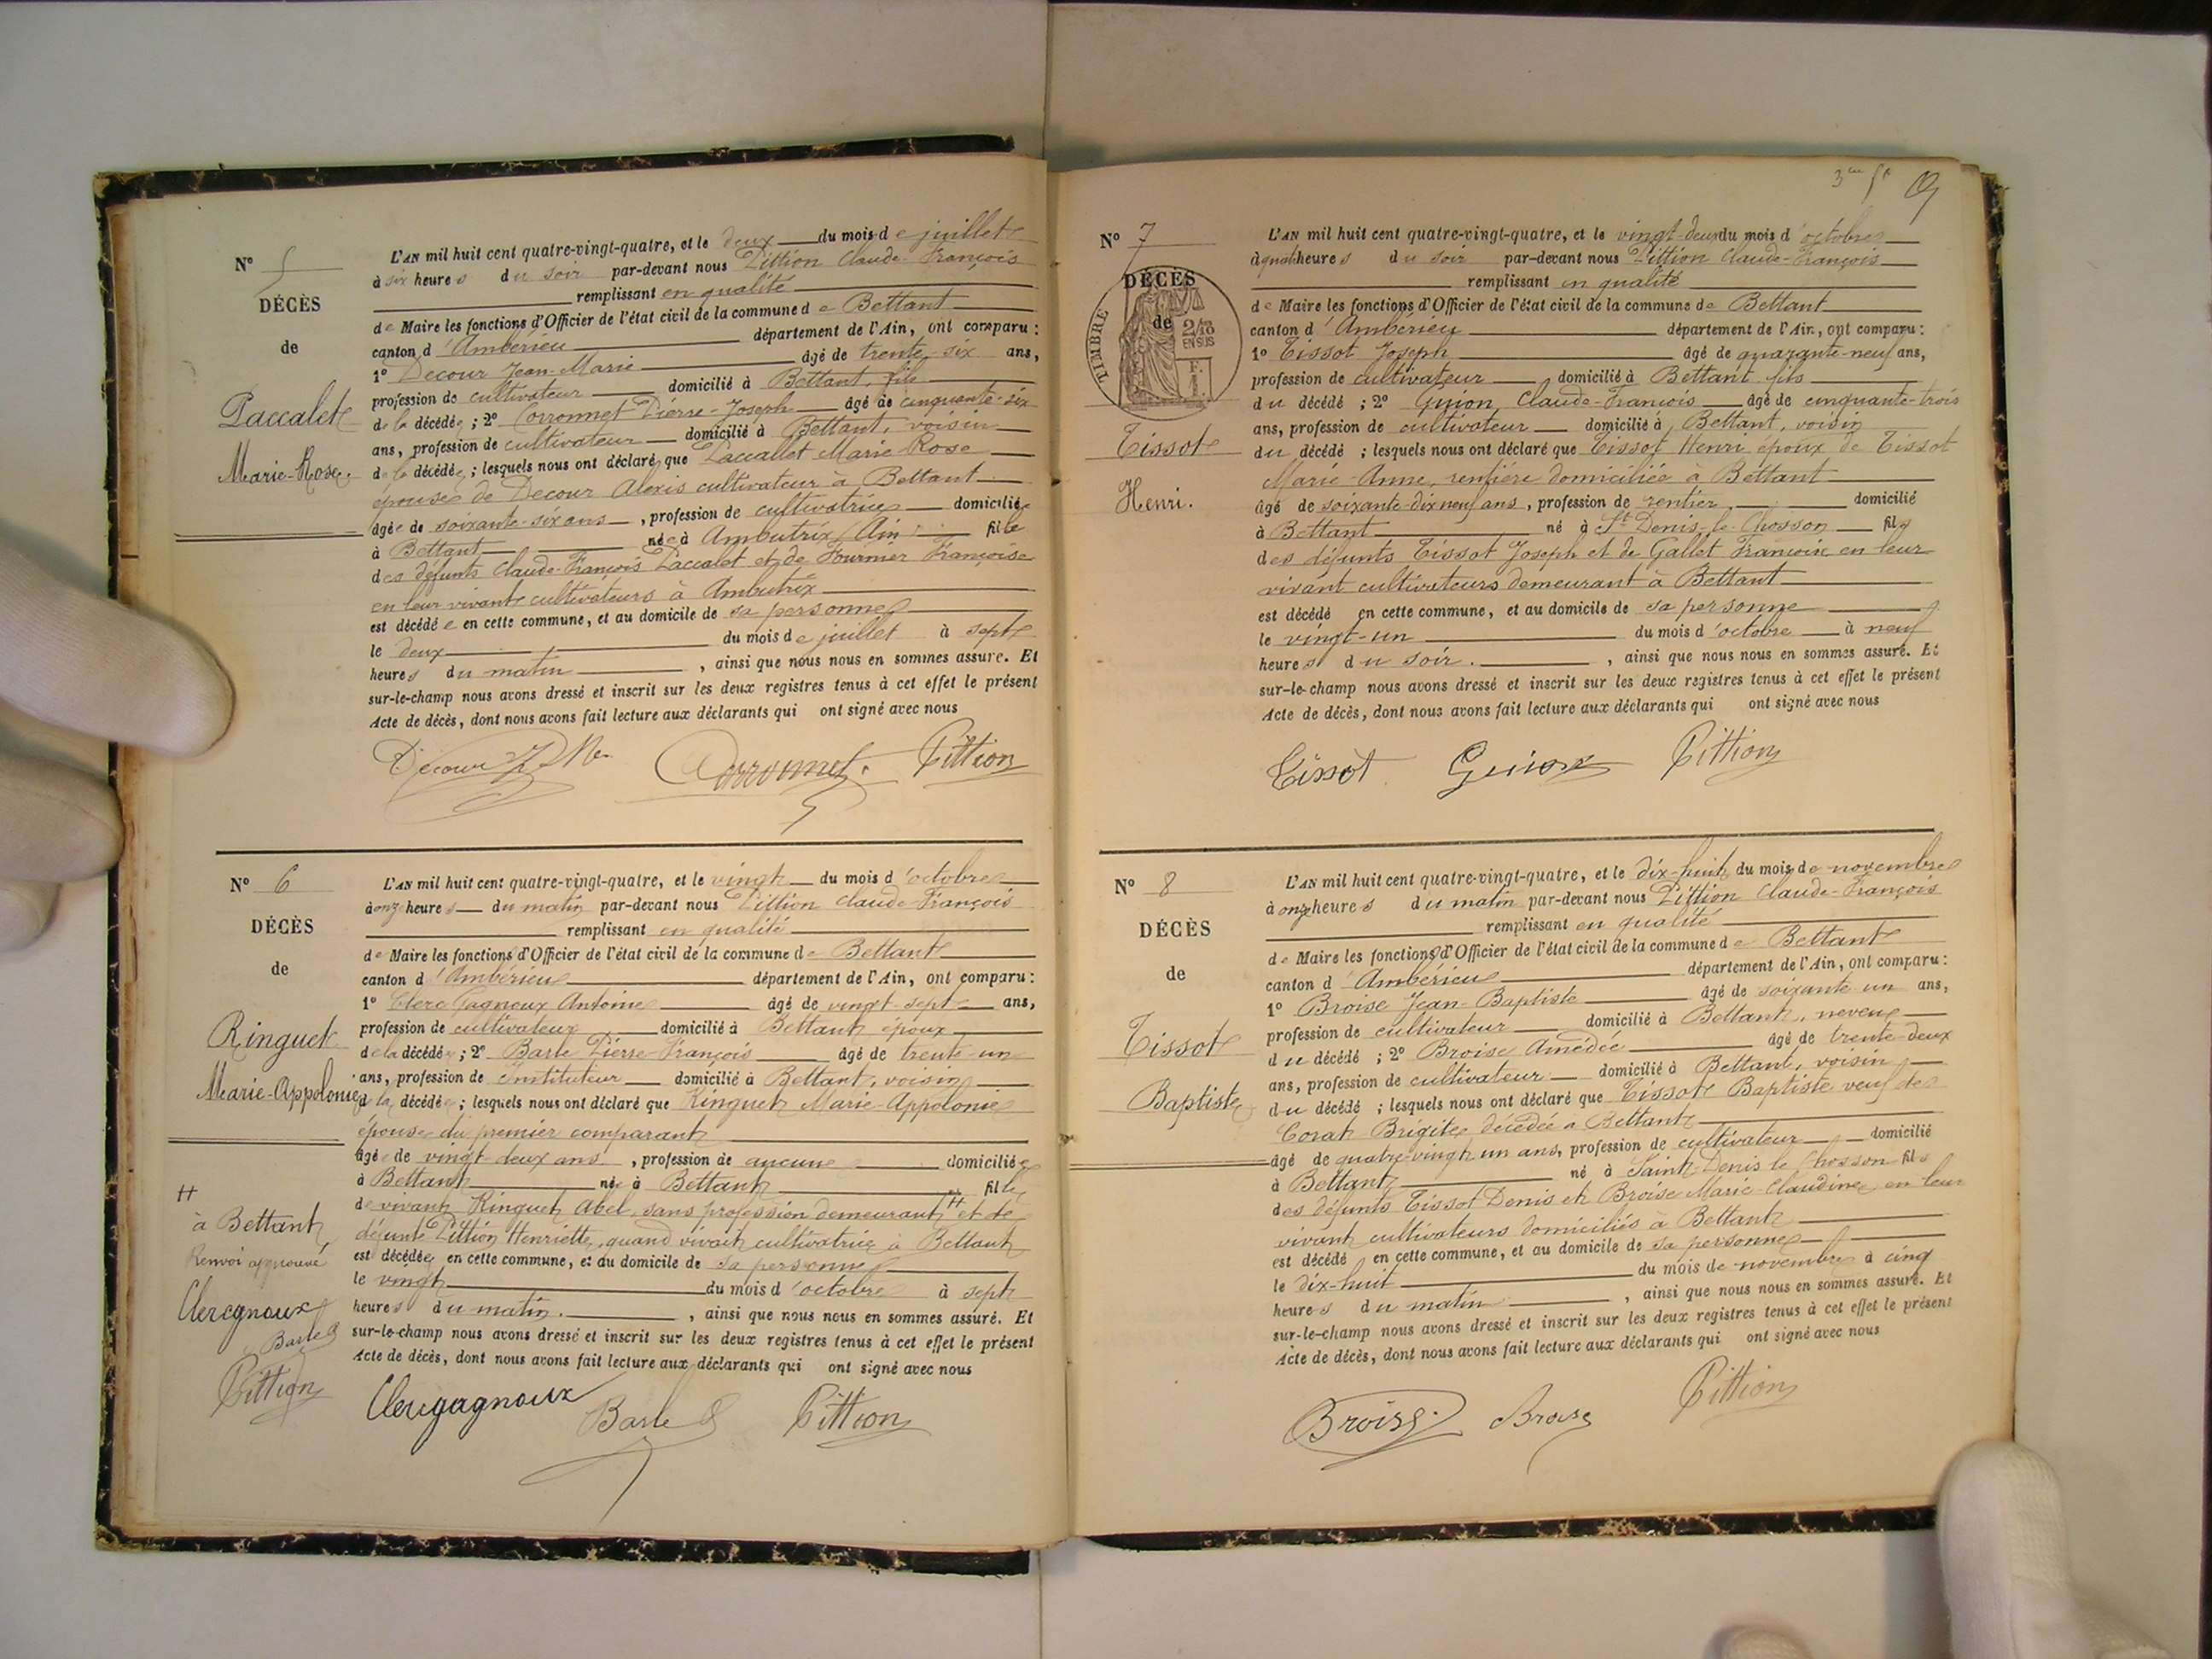 N° 5
DÉCÈS
de
Paccalet
Marie-Rose.
L'AN mil huit cent quatre-vingt-quatre, et le deux du mois de juillet
à six heures du soir par-devant nous Pittion Claude-François
remplissant en qualité
de Maire les fonctions d'Officier de l'état civil de la commune de Bettant
canton d'Ambérieu département de l'Ain, ont comparu :
1° Decour Jean-Marie âgé de trente-six ans,
profession de cultivateur domicilié à Bettant, fils
de la décédée ; 2° Corronnet Pierre-Joseph âgé de cinquante-six
ans, profession de cultivateur domicilié à Bettant, voisin
de la décédée ; lesquels nous ont déclaré que Paccallet Marie Rose
épouse de Decour Alexis cultivateur à Bettant
âgée de soixante-six ans, profession de cultivatrice domiciliée
à Bettant née à Ambutrix (Ain) fille
des défunts Claude-François Paccalet et de Fournier Françoise
en leur vivant cultivateurs à Ambutrix
est décédée en cette commune, et au domicile de sa personne
le deux du mois de juillet à sept
heures du matin, ainsi que nous nous en sommes assuré. Et
sur-le-champ nous avons dressé et inscrit sur les deux registres tenus à cet effet le présent
Acte de décès, dont nous avons fait lecture aux déclarants qui ont signé avec nous
Decour J M Corronnet Pittion
N° 6
DÉCÈS
de
Ringuet
Marie-Appolonie
L'AN mil huit cent quatre-vingt-quatre, et le vingt du mois d'octobre
à onze heures du matin par-devant nous Pittion Claude-François
remplissant en qualité
de Maire les fonctions d'Officier de l'état civil de la commune de Bettant
canton d'Ambérieu département de l'Ain, ont comparu :
1° Clerc Gagnoux Antoine âgé de vingt-sept ans,
profession de cultivateur domicilié à Bettant époux
de la décédée ; 2° Barle Pierre-François âgé de trente-un
ans, profession de instituteur domicilié à Bettant, voisin
de la décédée ; lesquels nous ont déclaré que Ringuet Marie-Appolonie
épouse du premier comparant
âgée de vingt-deux ans, profession de aucune domiciliée
à Bettant née à Bettant fille
de vivant Ringuet Abel, sans profession demeurant # et de
défunte Pittion Henriette, quand vivait cultivatrice à Bettant
est décédée en cette commune, et au domicile de sa personne
le vingt du mois d'octobre à sept
heures du matin., ainsi que nous nous en sommes assuré. Et
sur-le-champ nous avons dressé et inscrit sur les deux registres tenus à cet effet le présent
Acte de décès, dont nous avons fait lecture aux déclarants qui ont signé avec nous
#
à Bettant
Renvoi approuvé
Clercgnoux
Barle
Pittion
Clergagnoux Barle Pittion
3me f°
N° 7
DÉCÈS
de
TIMBRE
2/10
EN SUS
F.
1.
Tissot
Henri.
L'AN mil huit cent quatre-vingt-quatre, et le vingt-deux du mois d'octobre
à quat heures du soir par-devant nous Pittion Claude-François
remplissant en qualité
de Maire les fonctions d'Officier de l'état civil de la commune de Bettant
canton d'Ambérieu département de l'Ain, ont comparu :
1° Tissot Joseph âgé de quarante-neuf ans,
profession de cultivateur domicilié à Bettant fils
du décédé ; 2° Guion Claude-François âgé de cinquante-trois
ans, profession de cultivateur domicilié à Bettant, voisin
du décédé ; lesquels nous ont déclaré que Tissot Henri époux de Tissot
Marie-Anne, rentière domiciliée à Bettant
âgé de soixante-dix neuf ans, profession de rentier domicilié
à Bettant né à St Denis-le-Chosson fils
des défunts Tissot Joseph et de Gallet Françoise en leur
vivant cultivateurs demeurant à Bettant
est décédé en cette commune, et au domicile de sa personne
le vingt-un du mois d'octobre à neuf
heures du soir., ainsi que nous nous en sommes assuré. Et
sur-le-champ nous avons dressé et inscrit sur les deux registres tenus à cet effet le présent
Acte de décès, dont nous avons fait lecture aux déclarants qui ont signé avec nous
Tissot Guion Pittion
N° 8
DÉCÈS
de
Tissot
Baptiste
L'AN mil huit cent quatre-vingt-quatre, et le dix-huit du mois de novembre
à onze heures du matin par-devant nous Pittion Claude-François
remplissant en qualité
de Maire les fonctions d'Officier de l'état civil de la commune de Bettant
canton d'Ambérieu département de l'Ain, ont comparu :
1° Broise Jean-Baptiste âgé de soixante un ans,
profession de cultivateur domicilié à Bettant, neveu
du décédé ; 2° Broise Amédée âgé de trente-deux
ans, profession de cultivateur domicilié à Bettant, voisin
du décédé ; lesquels nous ont déclaré que Tissot Baptiste veuf de
Corat Brigite décédée à Bettant
âgé de quatre-vingt un ans, profession de cultivateur domicilié
à Bettant né à Saint-Denis le Chosson fils
des défunts Tissot Denis et Broise Marie-Claudine, en leur
vivant cultivateurs domiciliés à Bettant
est décédé en cette commune, et au domicile de sa personne
le dix-huit du mois de novembre à cinq
heures du matin, ainsi que nous nous en sommes assuré. Et
sur-le-champ nous avons dressé et inscrit sur les deux registres tenus à cet effet le présent
Acte de décès, dont nous avons fait lecture aux déclarants qui ont signé avec nous
Broise Broise Pittion